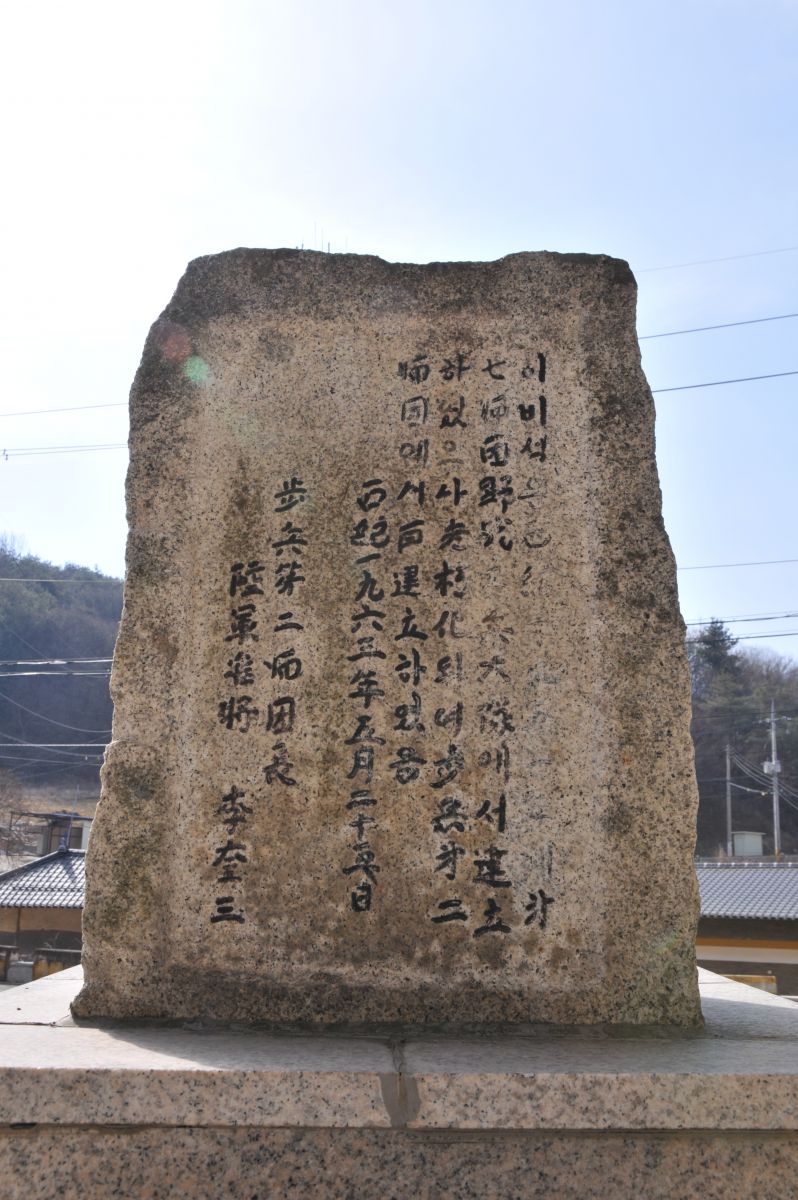 이비석은
七師團野戰工兵大隊에서建立
하였으나老朽化되여步兵第二
師团에서再建立하였음
西紀一九六三年五月二十五日
步兵第二師团長
陸軍准將 李奎三